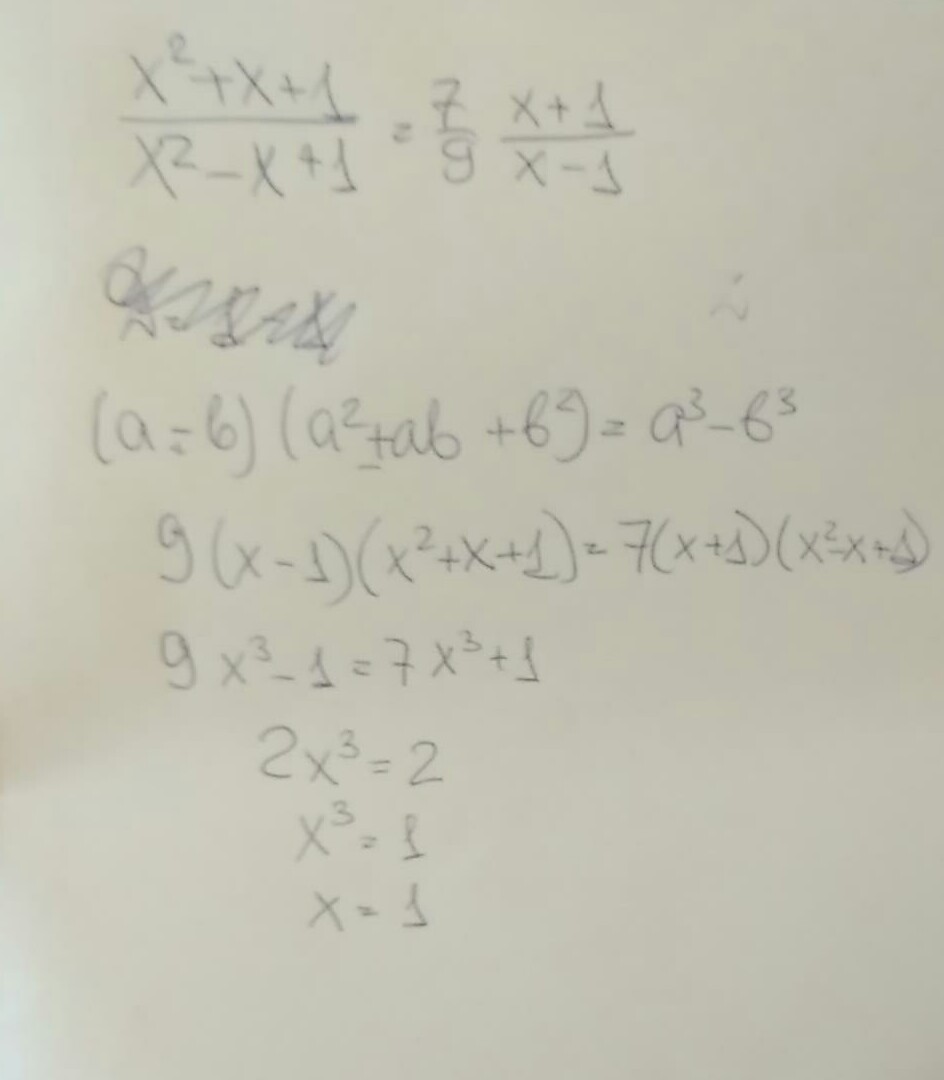 (x²+x+1)/(x²-x+1) = 7/9 (x+1)/(x-1)
(a-b)(a²+ab+b²)= a³-b³
9(x-1)(x²+x+1)=7(x+1)(x²-x+1)
9x³-1=7x³+1
2x³=2
x³=1
x=1